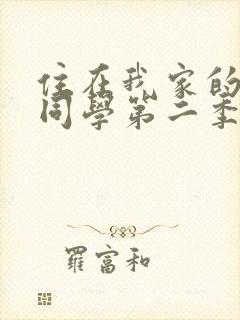 住在我家的
同學第二季
羅富和